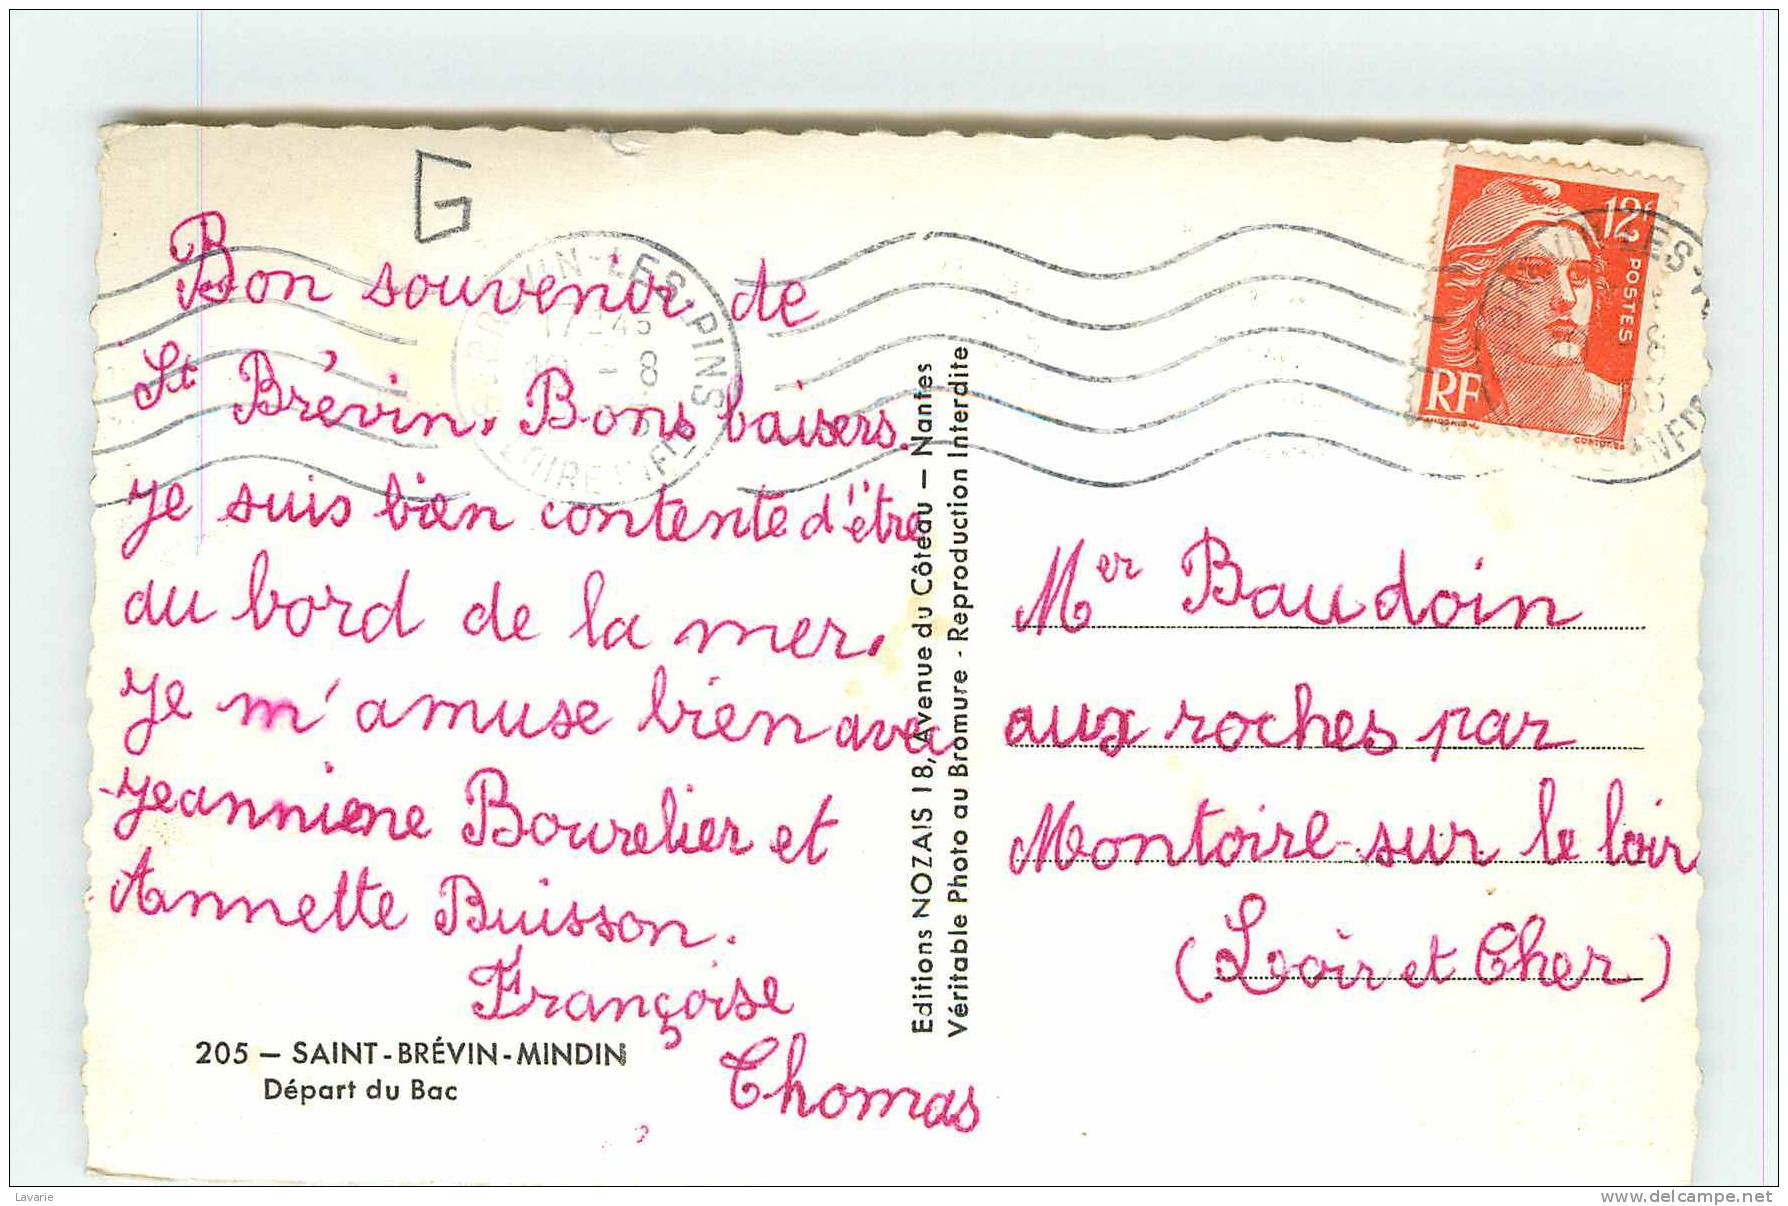 G
Bon souvenir de
St Brévin. Bons baisers.
Je suis bien contente d'être
au bord de la mer.
Je m'amuse bien avec
Jeanniene Bourelier et
Annette Buisson.
Françoise
Thomas
205 – SAINT-BRÉVIN-MINDIN
Départ du Bac
Editions NOZAIS 18, Avenue du Côteau – Nantes
Véritable Photo au Bromure - Reproduction Interdite
12f
POSTES
RF
VIN-LES-PINS
17 245
8
LOIRE INFRE
Mer Baudoin
aux roches par
Montoire-sur le loir
(Loir et Cher)
Lavarie
www.delcampe.net